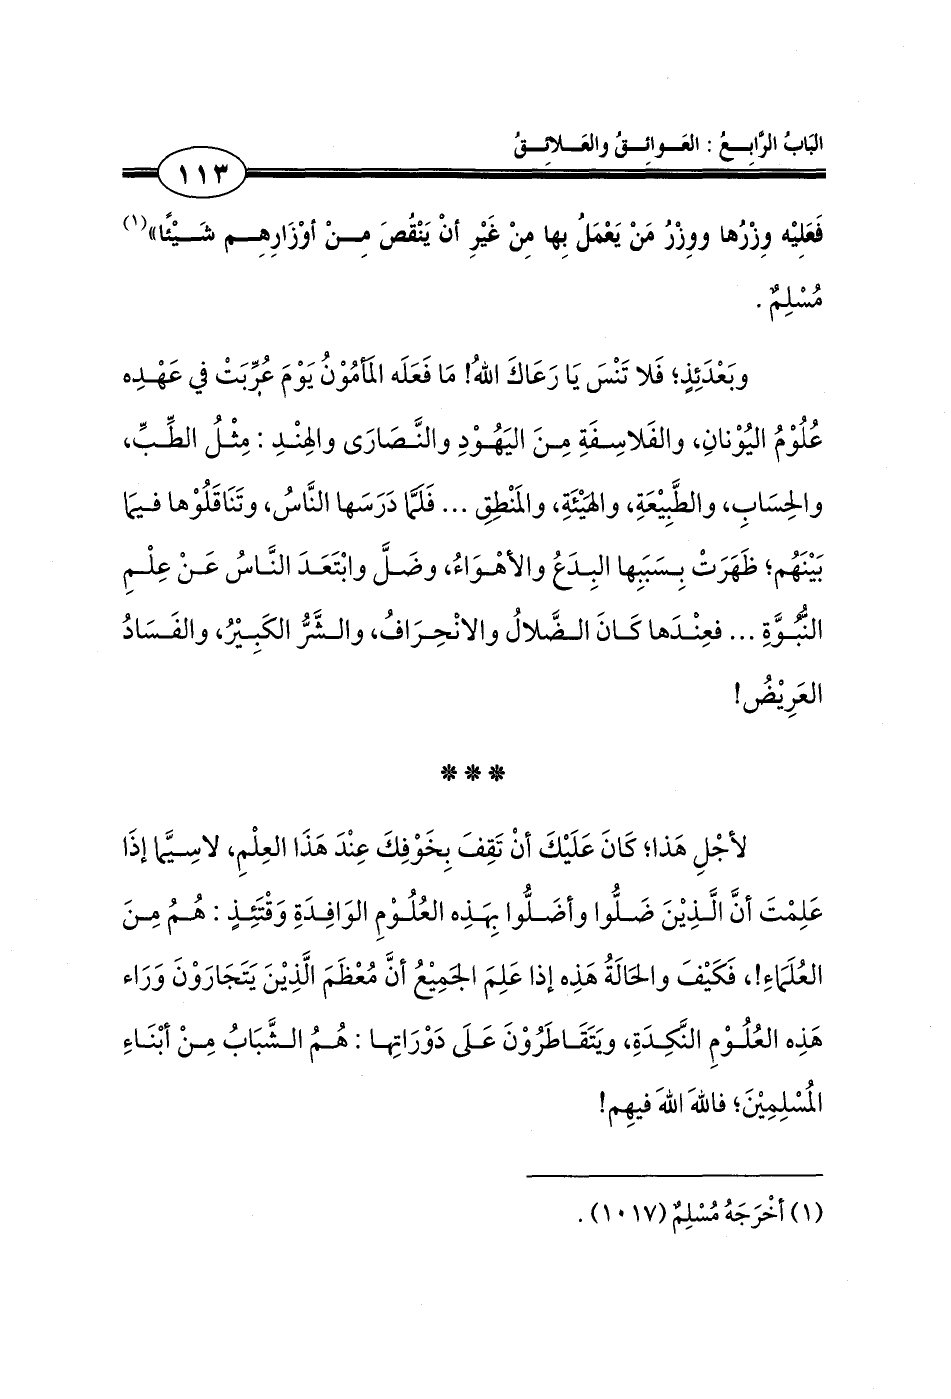 البَابُ الرَّابِعُ : العَوائِقُ والعَلائِقُ
١١٣
فَعَلِيْه وِزْرُها ووِزْرُ مَنْ يَعْمَلُ بِها مِنْ غَيْرِ أنْ يَنْقُصَ مِنْ أوْزَارِهِم شَيْئًا»(١)
مُسْلِمٌ .
وبَعْدَئِذٍ؛ فَلا تَنْسَ يَا رَعَاكَ اللهُ! مَا فَعَلَه المَأمُوْنُ يَوْمَ عُرِّبَتْ في عَهْدِه
عُلُوْمُ اليُوْنانِ، والفَلاسِفَةِ مِنَ اليَهُوْدِ والنَّصَارَى والهِنْدِ : مِثْلُ الطِّبِّ،
والحِسَابِ، والطَّبِيْعَةِ، والهَيْئَةِ، والمَنْطِقِ ... فَلَمَّا دَرَسَها النَّاسُ، وتَنَاقَلُوْها فيما
بَيْنَهُم؛ ظَهَرَتْ بِسَبَبِها البِدَعُ والأهْوَاءُ، وضَلَّ وابْتَعَدَ النَّاسُ عَنْ عِلْمِ
النُّبُوَّةِ ... فعِنْدَها كَانَ الضَّلالُ والانْحِرَافُ، والشَّرُّ الكَبِيْرُ، والفَسَادُ
العَرِيْضُ!
***
لأجْلِ هَذا؛ كَانَ عَلَيْكَ أنْ تَقِفَ بِخَوْفِكَ عِنْدَ هَذَا العِلْمِ، لاسِيَّما إذَا
عَلِمْتَ أنَّ الَّذِيْنَ ضَلُّوا وأضَلُّوا بِهَذِه العُلُوْمِ الوَافِدَةِ وَقْتَئِذٍ : هُمُ مِنَ
العُلَمَاءِ!، فَكَيْفَ والحَالَةُ هَذِه إذا عَلِمَ الجَمِيْعُ أنَّ مُعْظَمَ الَّذِيْنَ يَتَجَارَوْنَ وَرَاء
هَذِه العُلُوْمِ النَّكِدَةِ، ويَتَقَاطَرُوْنَ عَلَى دَوْرَاتِها : هُمُ الشَّبَابُ مِنْ أبْنَاءِ
المُسْلِمِيْنَ؛ فاللهَ اللهَ فيهِم!
(١) أخْرَجَهُ مُسْلِمٌ (١٠١٧) .